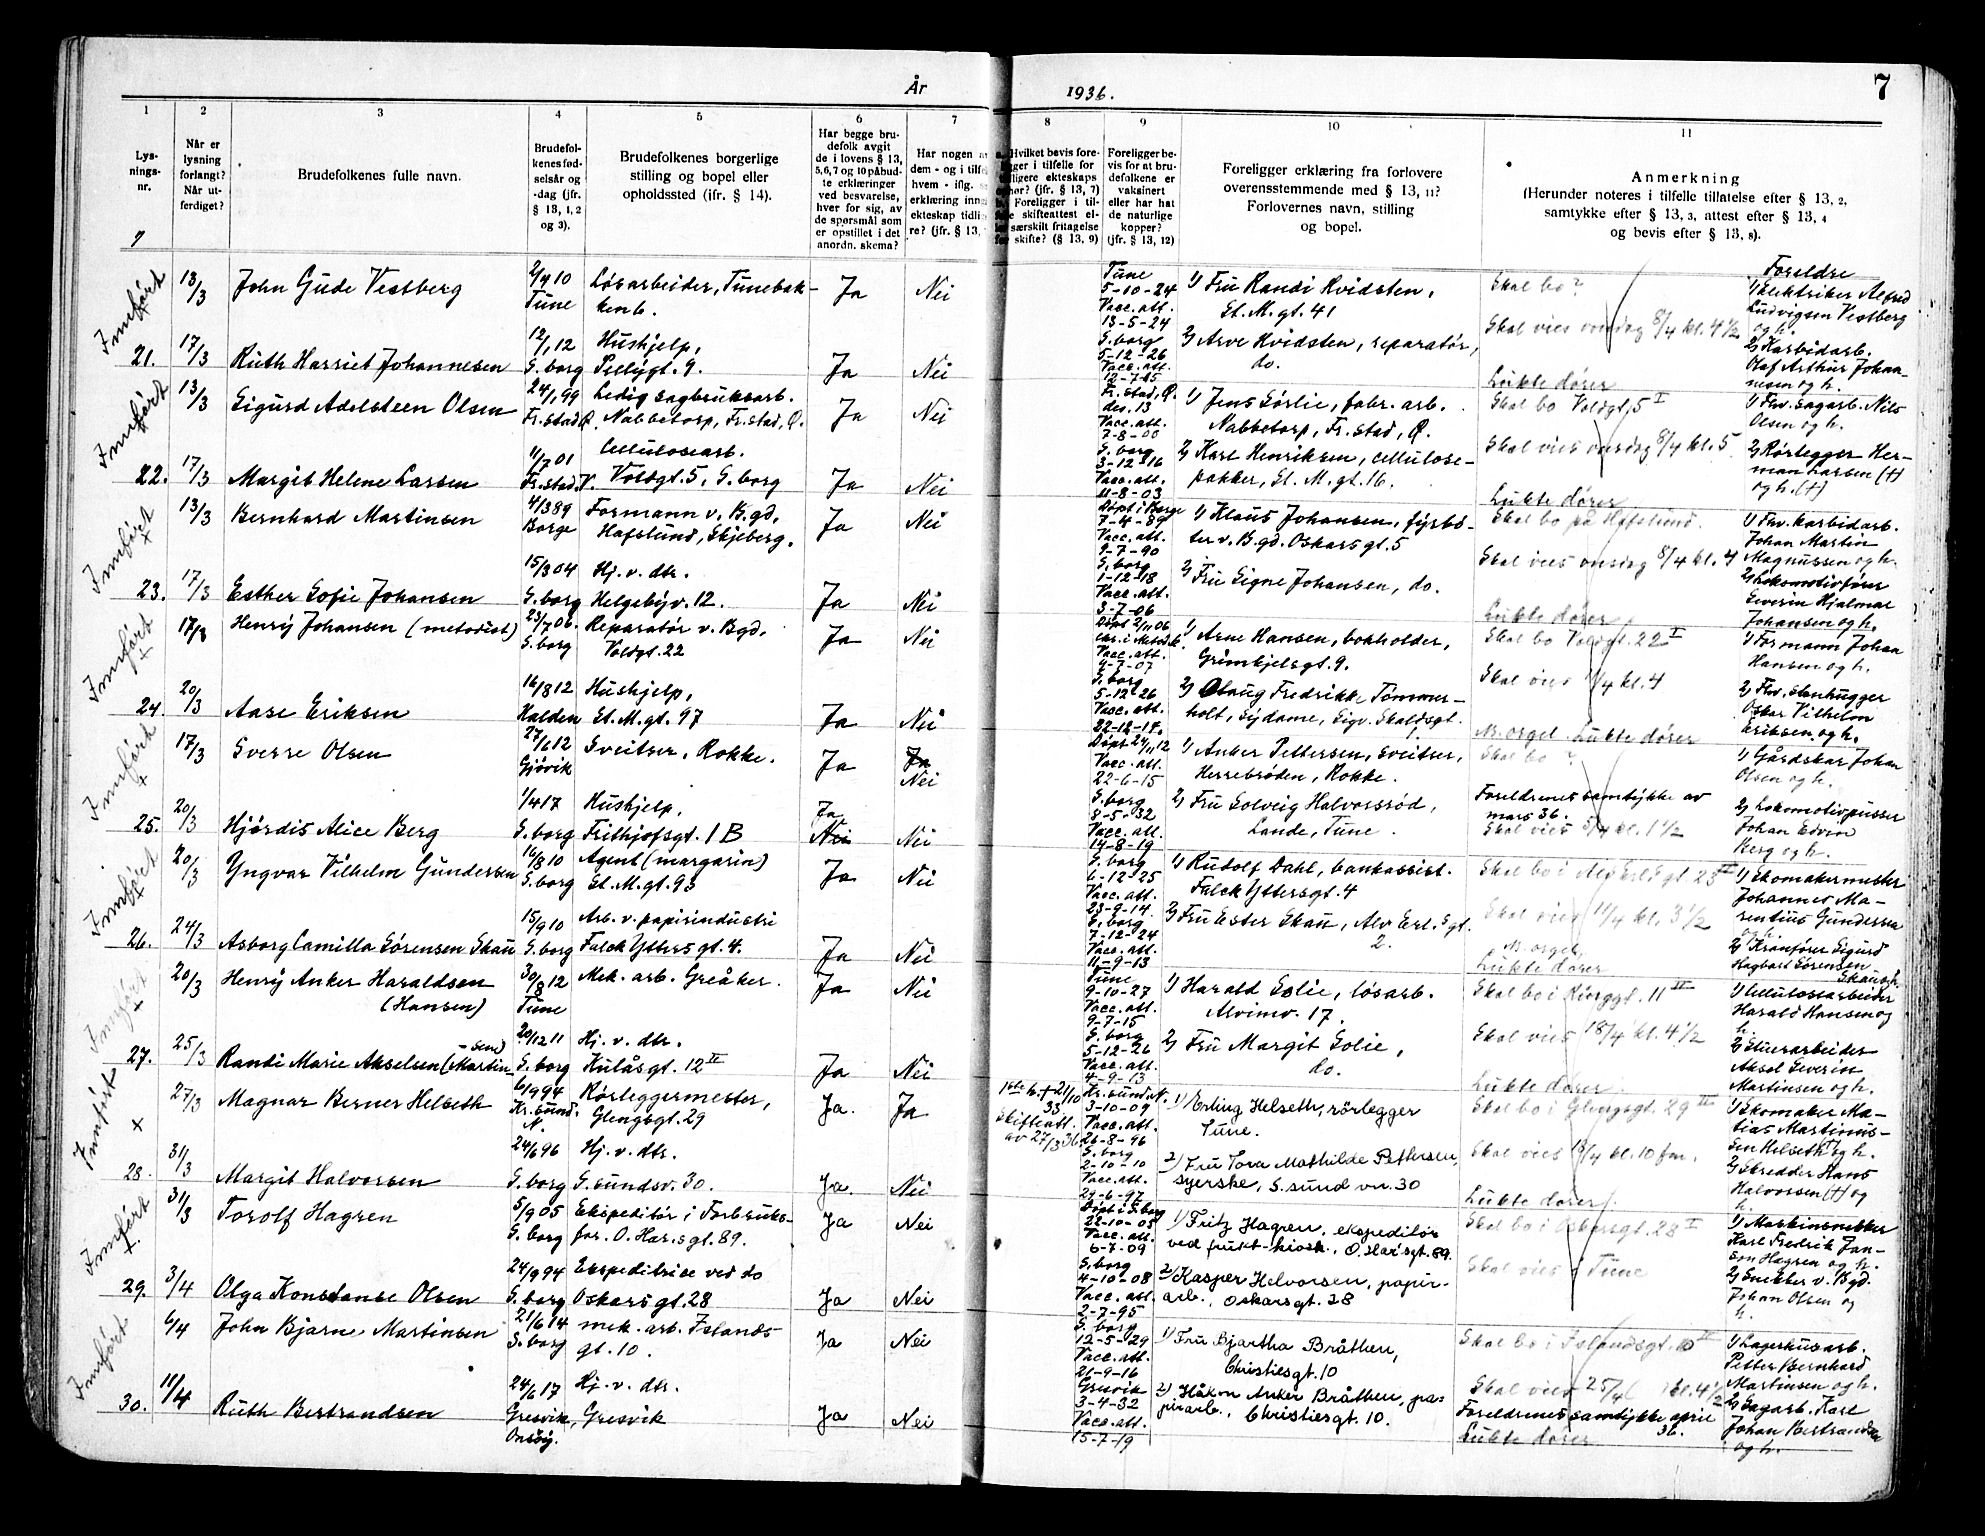 År 1936. 7
1 2 3 4 5 6 7 8 9 10 11
Lys-
nings-
nr.
Når er
lysning
forlangt?
Når ut-
ferdiget?
Brudefolkenes fulle navn.
Brudefol-
kenes fød-
selsår og
-dag (jfr.
§ 13, 1, 2
og 3).
Brudefolkenes borgerlige
stilling og bopel eller
opholdssted (ifr. § 14).
Har begge bru-
defolk avgit
de i lovens § 13,
5, 6, 7 og 10 påbud-
te erklæringer
ved besvarelse,
hver for sig, av
de spørsmål som
er opstillet i det
anordn. skema?
Har nogen a
dem - og i tilf
hvem - iflg.
erklæring inn
ekteskap tidli
re? (jfr. § 13,
Hvilket bevis fore-
ligger i tilfelle for
tidligere ekteskaps
ophør? (jfr. § 13, 7)
Foreligger i til-
felle skifteattest el-
særskilt fritagelse
for skifte? (§ 13, 9)
Foreligger be-
vis for at bru-
defolkene er
vaksinert
eller har hat
de naturlige
kopper?
(jfr. § 13, 12)
Foreligger erklæring fra forlovere
overensstemmende med § 13, 11?
Forlovernes navn, stilling
og bopel.
Anmerkning
(Herunder noteres i tilfelle tillatelse efter § 13, 2,
samtykke efter § 13, 3, attest efter § 13, 4
og bevis efter § 13, 8).
Innført
21.
18/3 John Gude Vestberg
2/9 10
Tune
Løsarbeider, Tunebak-
ken 6.
Ja Nei
Tune
5-10-24
Vacc. att.
13-5-24
1) Fru Randi Kvidsten,
St. M. gt. 41
Skal bo?
Foreldre
1) Elektriker Alfred
Ludvigsen Vestberg
og h.
17/3 Ruth Harriet Johannesen
12/1 12
S. borg
Hushjelp,
Pellygt. 9.
Ja Nei
S. borg
5-12-26
Vacc. att.
12-7-15
2) Arve Kvidsten, reparatør,
do.
Skal vies onsdag 8/4 kl. 4 1/2
Lukte dører
2) Karbidarb.
Olaf Arthur Johan-
nesen og h.
Innført
22.
13/3 Sigurd Adelsteen Olsen
24/1 99
Fr.stad Ø.
Ledig sagbruksarb.
Nabbetorp, Fr.stad, Ø.
Ja Nei
Fr.stad, Ø.
des. 13
Vacc. att.
7-8-00
1) Jens Sørlie, fabr. arb.
Nabbetorp, Fr.stad, Ø.
Skal bo Voldgt. 5 I
1) Fhv. sagarb. Nils
Olsen og h.
17/3 Margit Helene Larsen
11/7 01
Fr.stad. V.
Cellulosearb.
Voldgt. 5, S. borg
Ja Nei
S. borg
3-12-16
Vacc. att.
11-8-03
2) Karl Henriksen, cellulose-
pakker, St. M. gt. 16.
Skal vies onsdag 8/4 kl. 5
Lukte dører
2) Rørlegger Her-
man Larsen (†)
og h. (†)
Innført
23.
13/3 Bernhard Martinsen
4/3 89
Borge
Formann v. B.gd,
Hafslund, Skjeberg.
Ja Nei
Døpt i Borge
7-4-89
Vacc. att.
9-7-90
1) Klaus Johansen, fyrbø-
ter v. B.gd. Oskarsgt. 5
Skal bo på Hafslund.
1) Fhv. karbidarb.
Johan Martin
Magnussen og h.
17/3 Esther Sofie Johansen
15/3 04
S. borg
Hj. v. dtr.
Helgebyv. 12.
Ja Nei
S. borg
1-12-18
Vacc. att.
3-7-06
2) Fru Signe Johansen, do.
Skal vies onsdag 8/4 kl. 4
Lukte dører
2) Lokomotivfører
Severin Hjalmar
Johansen og h.
Innført
24.
17/3 Henry Johansen (metodist)
23/7 06.
S. borg
Reparatør v. Bgd,
Voldgt. 22
Ja Nei
Døbt 2/11 06
Vacc. att.
9-7-07
1) Arne Hansen, bokholder,
Grimkjelsgt. 9.
Skal bo Voldgt. 22 I
1) Formann Johan
Hansen og h.
20/3 Aase Eriksen
16/8 12
Halden
Hushjelp,
St. M. gt. 97
Ja Nei
S. borg
5-12-26
Vacc. att.
22-12-17.
2) Olaug Fredrikke Tømmer-
holt, sydame, Sigv. Skaldsgt.
Skal vies 11/4 kl. 4
N. orgel. Lukte dører
2) Fhv. stenhugger
Oskar Vilhelm
Eriksen og h.
Innført
25.
17/3 Sverre Olsen
27/6 12
Gjøvik
Sveitser, Rokke.
Ja Ja
Nei
Døpt 24/11 12
Vacc. att.
22-6-15
1) Anker Pettersen, sveitser,
Herrebrøden, Rokke.
Skal bo ?
1) Gårdskar Johan
Olsen og h.
20/3 Hjørdis Alice Berg
1/4 17
S. borg
Hushjelp,
Frithjofsgt. 1 B
Ja
Nei Nei
S. borg
8-5-32
Vacc. att.
14-8-19
2) Fru Solveig Halvorsrød,
Lande, Tune.
Foreldrenes samtykke av
mars 36.
Skal vies 5/4 kl. 1 1/2
2) Lokomotivpusser
Johan Edvin
Berg og h.
Innført
26.
20/3 Yngvar Vilhelm Gundersen
16/8 10
S. borg
Agent (margarin)
St. M. gt. 93
Ja Nei
S. borg
6-12-25
Vacc. att.
23-9-14.
1) Rudolf Dahl, bankassist.
Falck Yttersgt. 4
Skal bo i Alv Erl. Sgt 23 II
1) Skomakermester
Johannes Ma-
rentius Gundersen
og h.
24/3 Asborg Camilla Sørensen Skau
15/9 10
S. borg
Arb. v. papirindustri
Falck Yttersgt. 4.
Ja Nei
S. borg
7-12-24
Vacc. att.
11-9-13
2) Fru Ester Skau, Alv Erl. s gt.
2.
Skal vies 11/4 kl. 3 1/2
N. orgel
Lukte dører
2) Kranfører Sigurd
Hagbart Sørensen-
Skau og h.
Innført
27.
20/3 Henry Anker Haraldsen
(Hansen)
30/8 12
Tune
Mek. arb. Greåker.
Ja Nei
Tune
9-10-27
Vacc. att.
9-7-15
1) Harald Solie, løsarb.
Alvimv. 17.
Skal bo i Kirkegt. 11 II
1) Cellulosearbeider
Harald Hansen og
h.
25/3 Randi Marie Akselsen (Martin-
sen)
20/12 11
S. borg
Hj. v. dtr.
Kulåsgt. 12 II
Ja Nei
S. borg
5-12-26
Vacc. att.
4-9-13
2) Fru Margit Solie,
do.
Skal vies 18/4 kl. 4 1/2
Lukte dører
2) Stuerarbeider
Aksel Severin
Martinsen og h.
Innført
28.
27/3 Magnar Berner Helseth
6/9 94
Kr.sund.
N.
Rørleggermester,
Glengsgt. 29
Ja. Ja
1ste h. † 21/10
33
Skifteatt.
av 27/3 36.
Kr.sund N.
3-10-09
Vacc. att.
26-8-96
1) Erling Helseth, rørlegger
Tune.
Skal bo i Glengsgt. 29 II
1) Skomaker Ma-
tias Martinus-
sen Helseth og h.
31/3 Margit Halvorsen
24/6 96
S. borg
Hj. v. dtr.
S. sundsv. 30.
Ja. Nei
S. borg
2-10-10
Vacc. att.
29-6-97
2) Fru Tora Mathilde Pettersen,
syerske, S. sund vn. 30
Skal vies 13/4 kl. 10 fm.
Lukte dører
2) Skredder Hans
Halvorsen (†) og
h.
Innført
29.
31/3 Torolf Hagren
5/9 05
S. borg
Ekspeditør i Forbruks-
for. O. Har.sgt. 89.
Ja Nei
Døpt i S.borg
22-10-05
Vacc. att.
6-7-09
1) Fritz Hagren, ekspeditør
ved frukt-kiosk, O. Har.sgt. 89.
Skal bo i Oskarsgt. 28 I
1) Maskinsnekker
Karl Fredrik Jan-
sen Hagren og h.
3/4 Olga Konstanse Olsen
24/9 94
S. borg
Ekspeditrise ved do
Oskarsgt. 28
Ja Nei
S. borg
4-10-08
Vacc. att.
2-7-95
2) Kasper Helvorsen, papir-
arb., Oskarsgt. 28
Skal vies i Tune
2) Snekker v. Bgd.
Johan Olsen og
h.
Innført
30.
6/4 John Bjarne Martinsen
21/6 14
S. borg
mek. arb. Islands-
gt. 10.
Ja Nei
S. borg
12-5-29
Vacc. att.
26-9-16
1) Fru Bjartha Bråthen,
Christiesgt. 10
Skal bo i Islandsgt. 10 II
1) Lagerhusarb.
Petter Bernhard
Martinsen og h.
11/4 Ruth Bertrandsen
24/6 17
Gresvik,
Onsøy.
Hj. v. dtr.
Gresvik
Ja Nei
Gresvik
3-4-32
Vacc. att.
15-7-19
2) Håkon Anker Bråthen, pa-
pirarb., Christiesgt. 10.
Skal vies 25/4 kl. 4 1/2
Foreldrenes samtykke april
36.
Lukte dører
2) Sagarb. Karl
Johan Bertrandsen
og h.